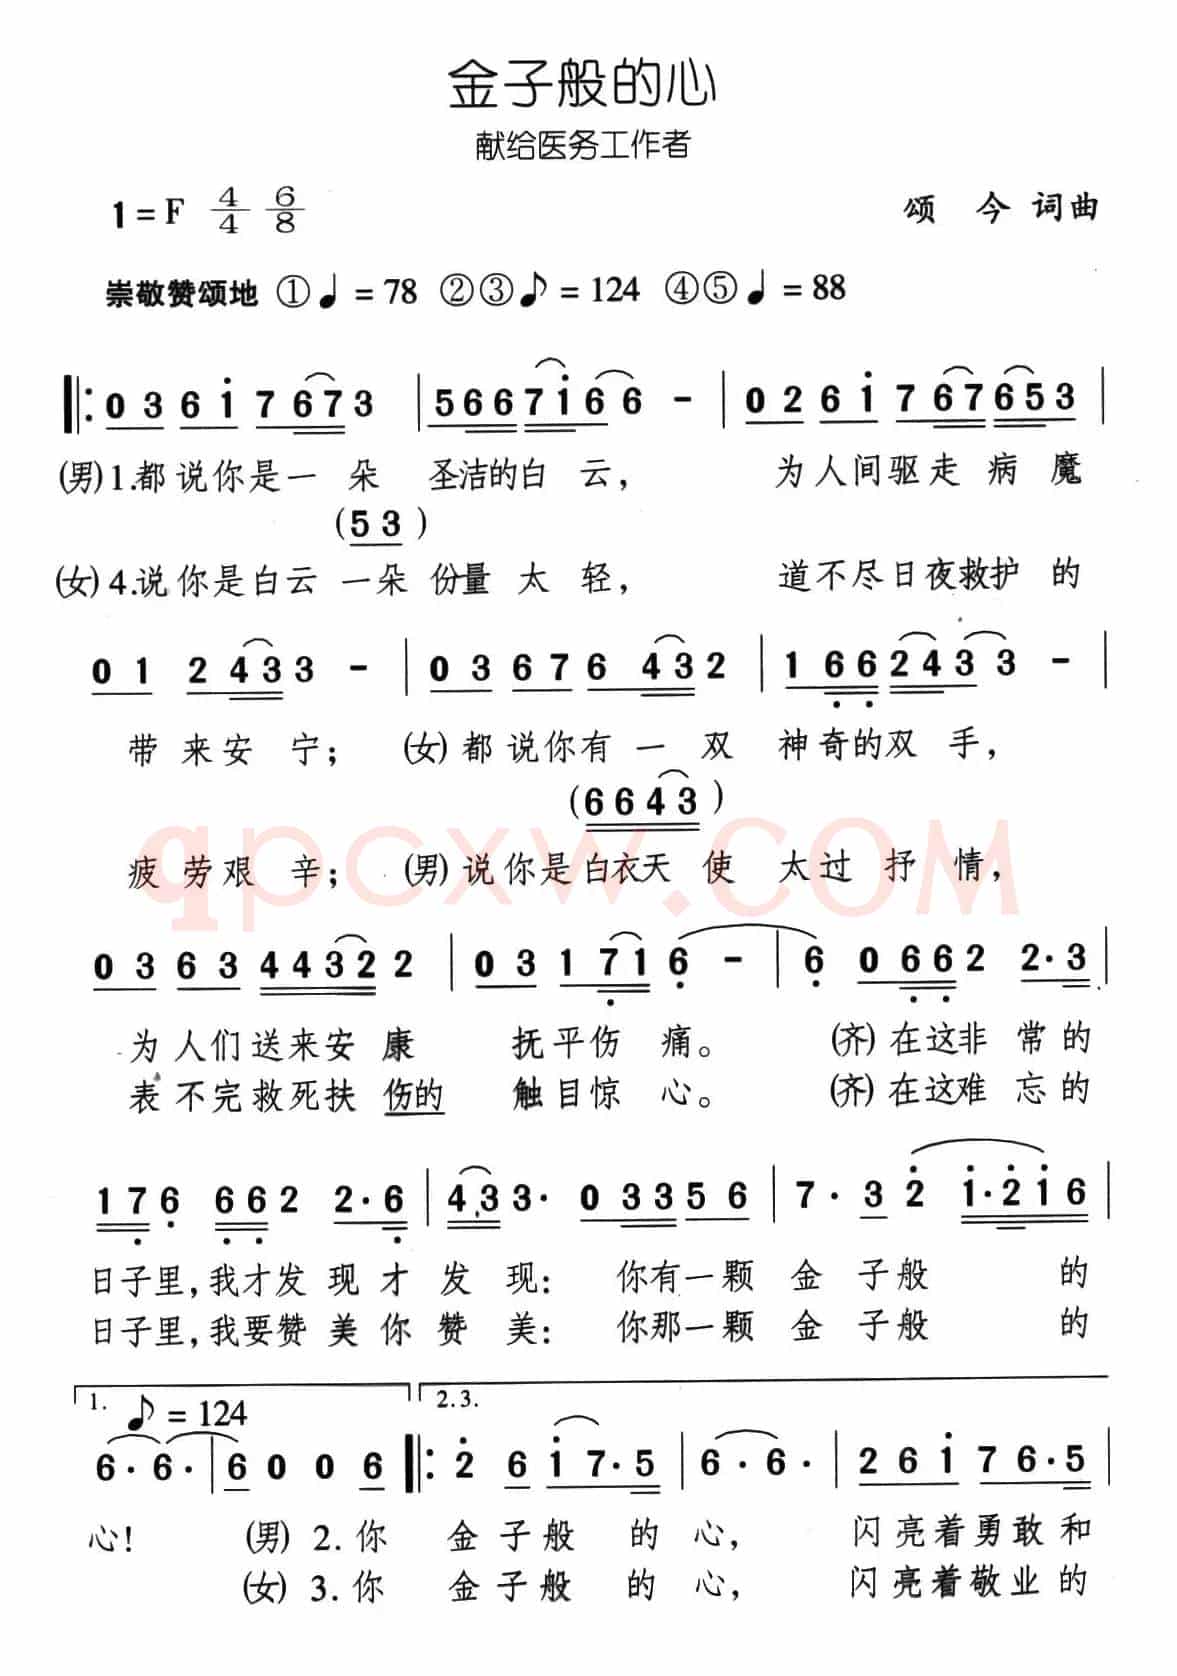 金子般的心
献给医务工作者
1=F 4/4 6/8 颂 今 词曲
崇敬赞颂地 ①♩=78 ②③♪=124 ④⑤♩=88
‖: 0 3 6 i 7 6 7 3 | 5 6 6 7 i 6 6 - | 0 2 6 i 7 6 7 6 5 3 |
(男)1.都说你是一 朵 圣洁的白 云， 为人间驱走 病 魔
(5 3)
(女)4.说你是白云 一朵 份量 太 轻， 道不尽日夜救护 的
0 1 2 4 3 3 - | 0 3 6 7 6 4 3 2 | 1 6 6 2 4 3 3 - |
带 来安 宁； (女)都说你有 一 双 神奇的双 手，
(6 6 4 3)
疲 劳艰 辛； (男)说你是白衣天 使 太过 抒 情，
qpcxw.COM
0 3 6 3 4 4 3 2 2 | 0 3 1 7 1 6 - | 6 0 6 6 2 2·3 |
为人们送来安 康 抚平伤 痛。 (齐)在这非 常的
表不完救死扶 伤的 触目惊 心。 (齐)在这难 忘的
1 7 6 6 6 2 2·6 | 4 3 3 3· 0 3 3 5 6 | 7· 3 2 1·2 1 6 |
日子里，我才发 现 才 发 现： 你有一颗 金 子般 的
日子里，我要赞 美 你 赞 美： 你那一颗 金 子般 的
1. ♪=124 2.3.
6· 6· | 6 0 0 6 ‖: 2 6 i 7·5 | 6· 6· | 2 6 i 7 6·5 |
心! (男) 2. 你 金 子 般 的 心， 闪亮着勇敢和
(女) 3. 你 金 子 般 的 心， 闪亮着敬业的